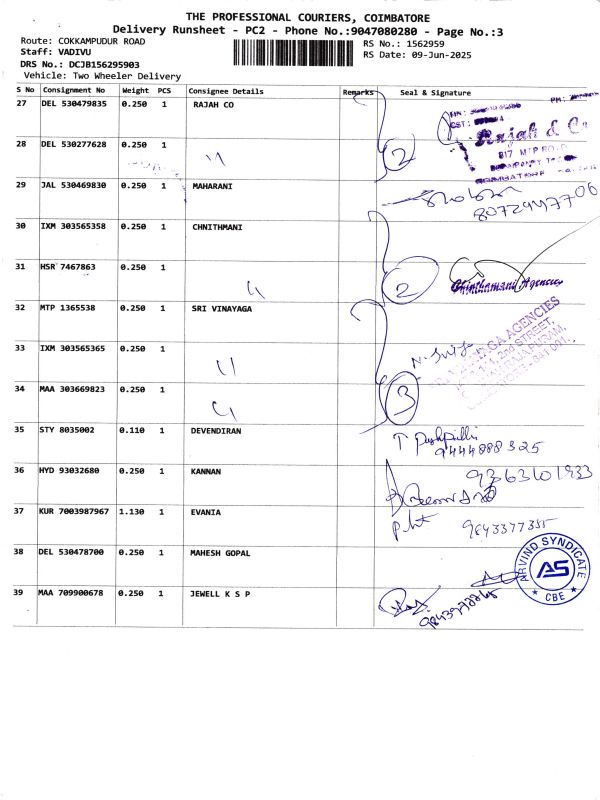 THE PROFESSIONAL COURIERS, COIMBATORE
Delivery Runsheet - PC2 - Phone No.:9047080280 - Page No.:3
Route: COKKAMPUDUR ROAD
Staff: VADIVU
DRS No.: DCJB156295903
Vehicle: Two Wheeler Delivery
RS No.: 1562959
RS Date: 09-Jun-2025
S No Consignment No Weight PCS Consignee Details Remarks Seal & Signature
27 DEL 530479835 0.250 1 RAJAH CO
Rajah & Co
817 MTP ROAD
28 DEL 530277628 0.250 1 〃 2
29 JAL 530469830 0.250 1 MAHARANI
8072947706
30 IXM 303565358 0.250 1 CHNITHMANI
31 HSR 7467863 0.250 1 〃 2
Chinthamani Agencies
32 MTP 1365538 0.250 1 SRI VINAYAGA
33 IXM 303565365 0.250 1 〃
34 MAA 303669823 0.250 1 〃 3
35 STY 8035002 0.110 1 DEVENDIRAN
9444888325
36 HYD 93032680 0.250 1 KANNAN
9363101933
37 KUR 7003987967 1.130 1 EVANIA
9843377355
38 DEL 530478700 0.250 1 MAHESH GOPAL
ARVIND SYNDICATE
AS
* CBE *
39 MAA 709900678 0.250 1 JEWELL K S P